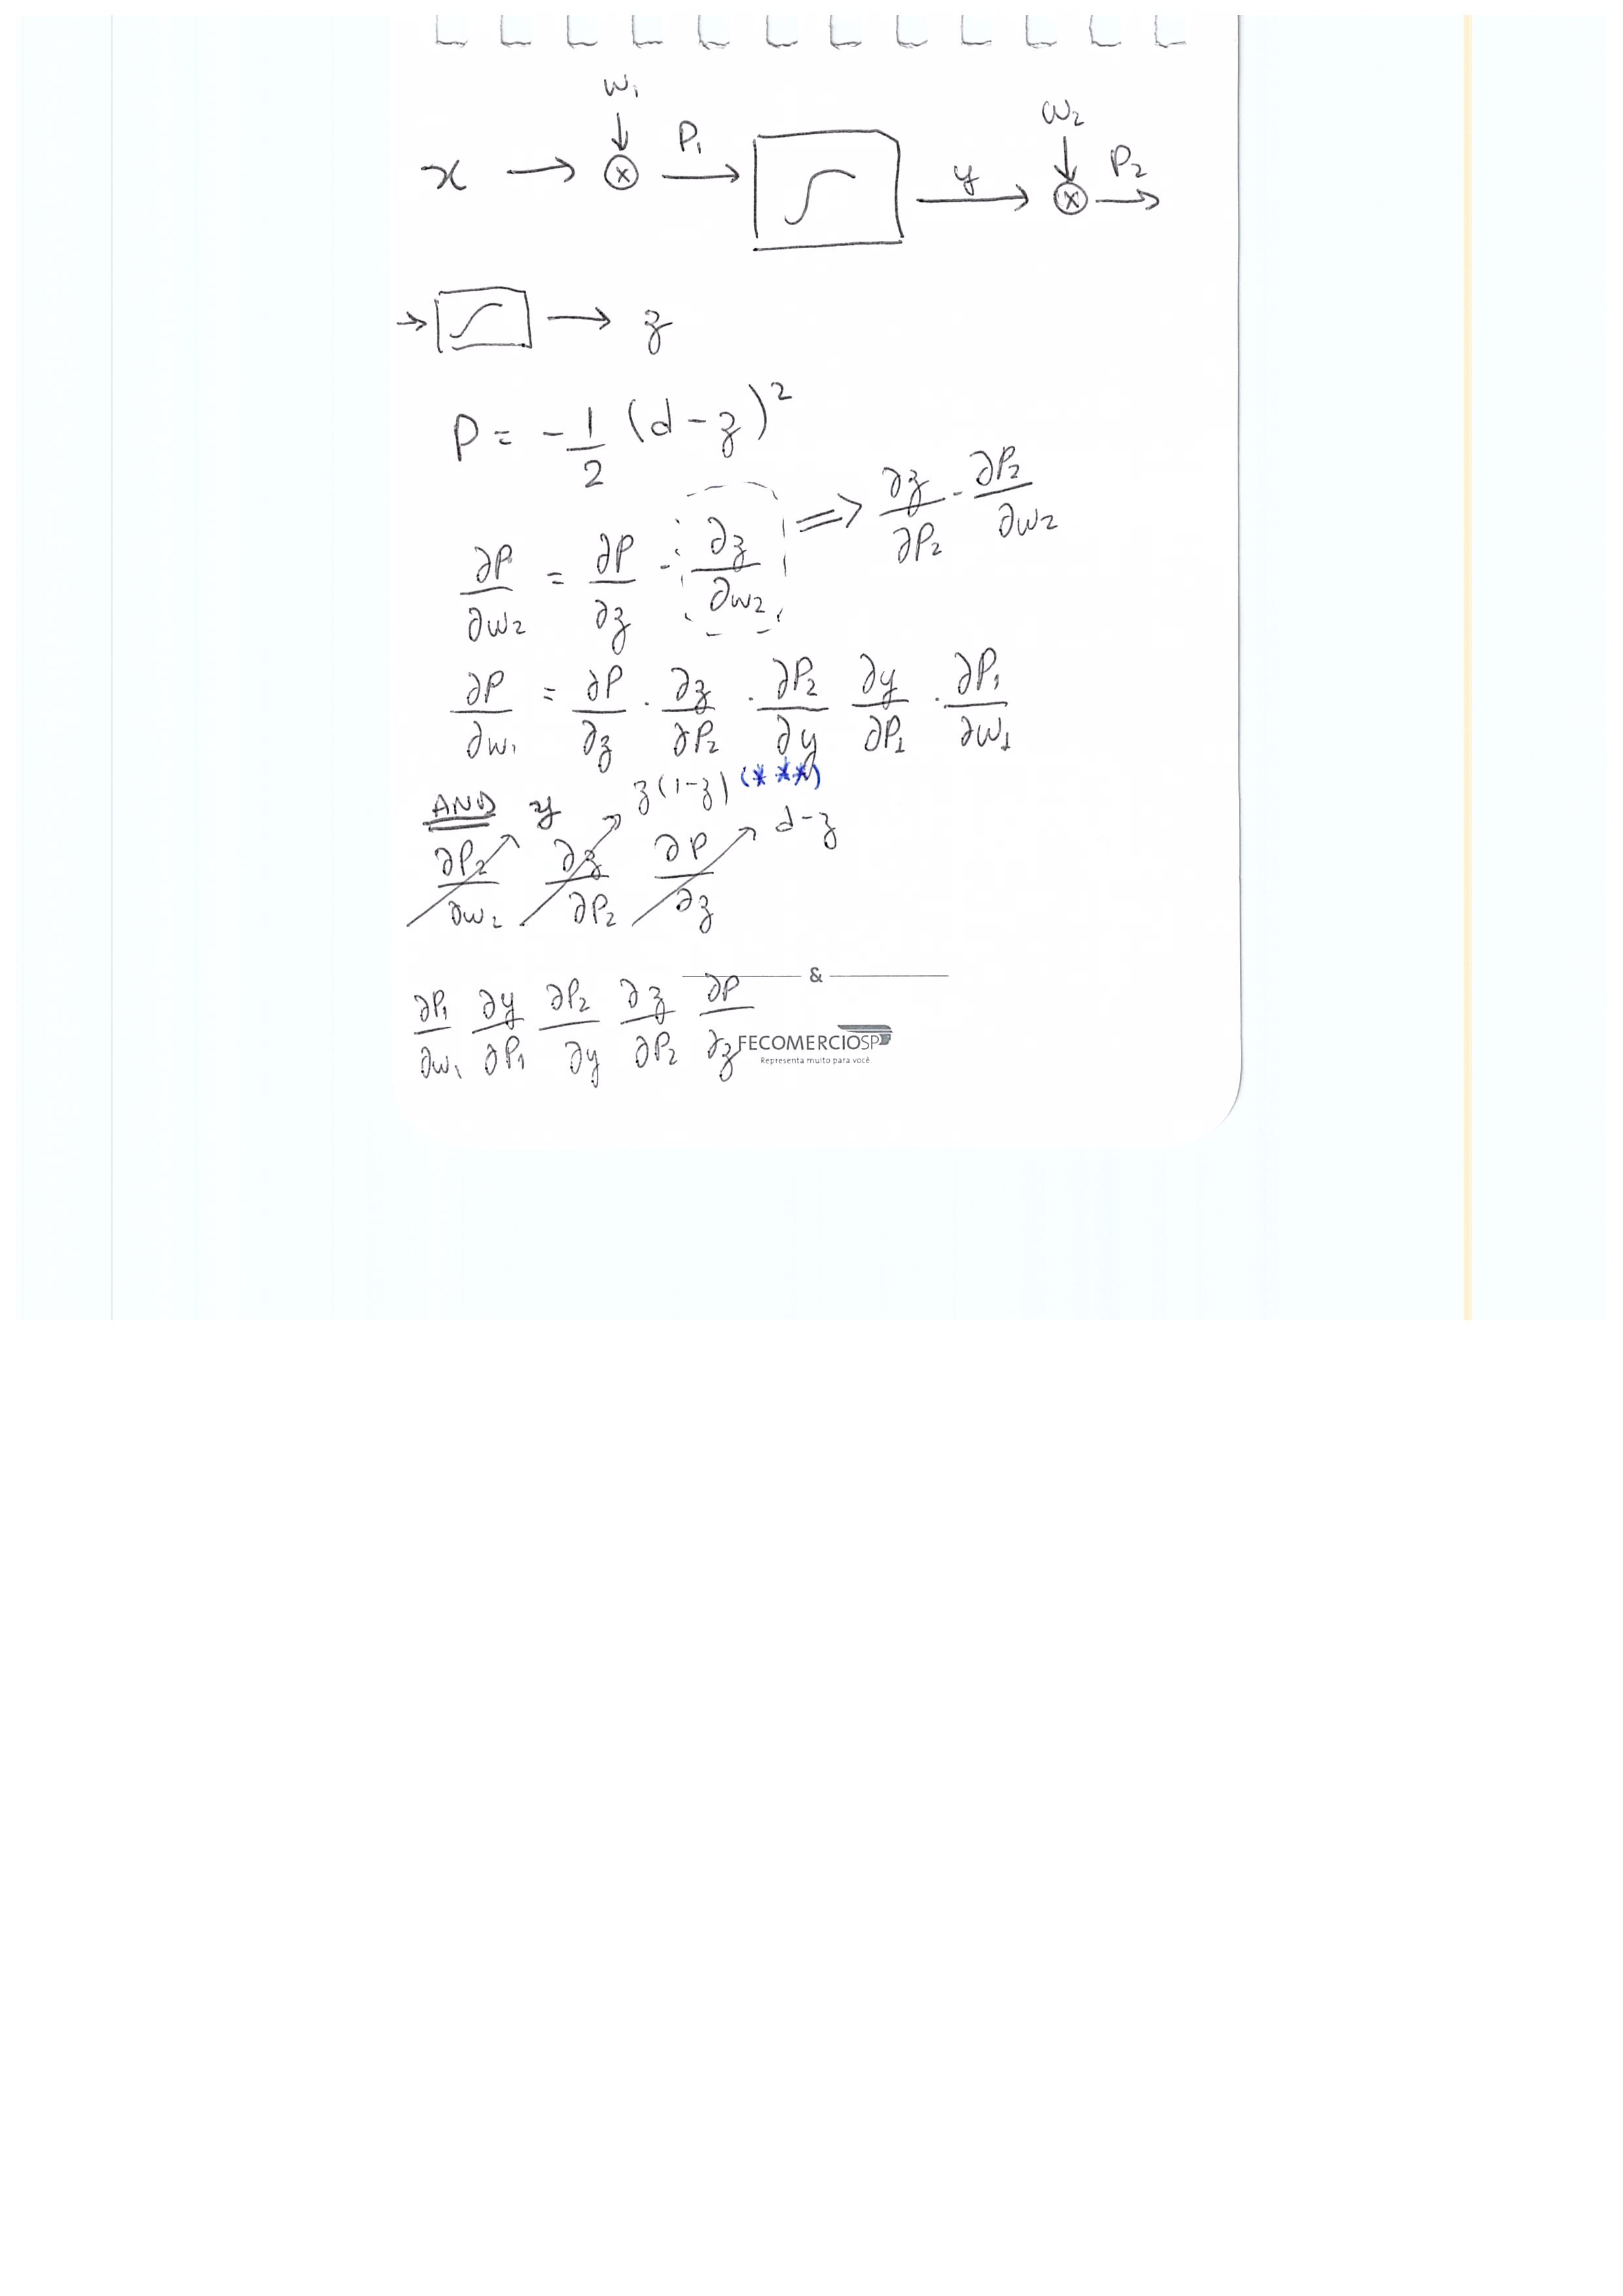 w₁
x → ⊗ P₁ → ∫ y → ⊗ P₂ →
w₂
→ ∫ → z
P = -1/2 (d-z)²
∂P/∂w₂ = ∂P/∂z · ∂z/∂w₂ ⇒ ∂z/∂P₂ · ∂P₂/∂w₂
∂P/∂w₁ = ∂P/∂z · ∂z/∂P₂ · ∂P₂/∂y ∂y/∂P₁ · ∂P₁/∂w₁
AND y z(1-z) (***) d-z
∂P₂/∂w₂ ∂z/∂P₂ ∂P/∂z
&
∂P₁/∂w₁ ∂y/∂P₁ ∂P₂/∂y ∂z/∂P₂ ∂P/∂z
FECOMERCIOSP
Representa muito para você